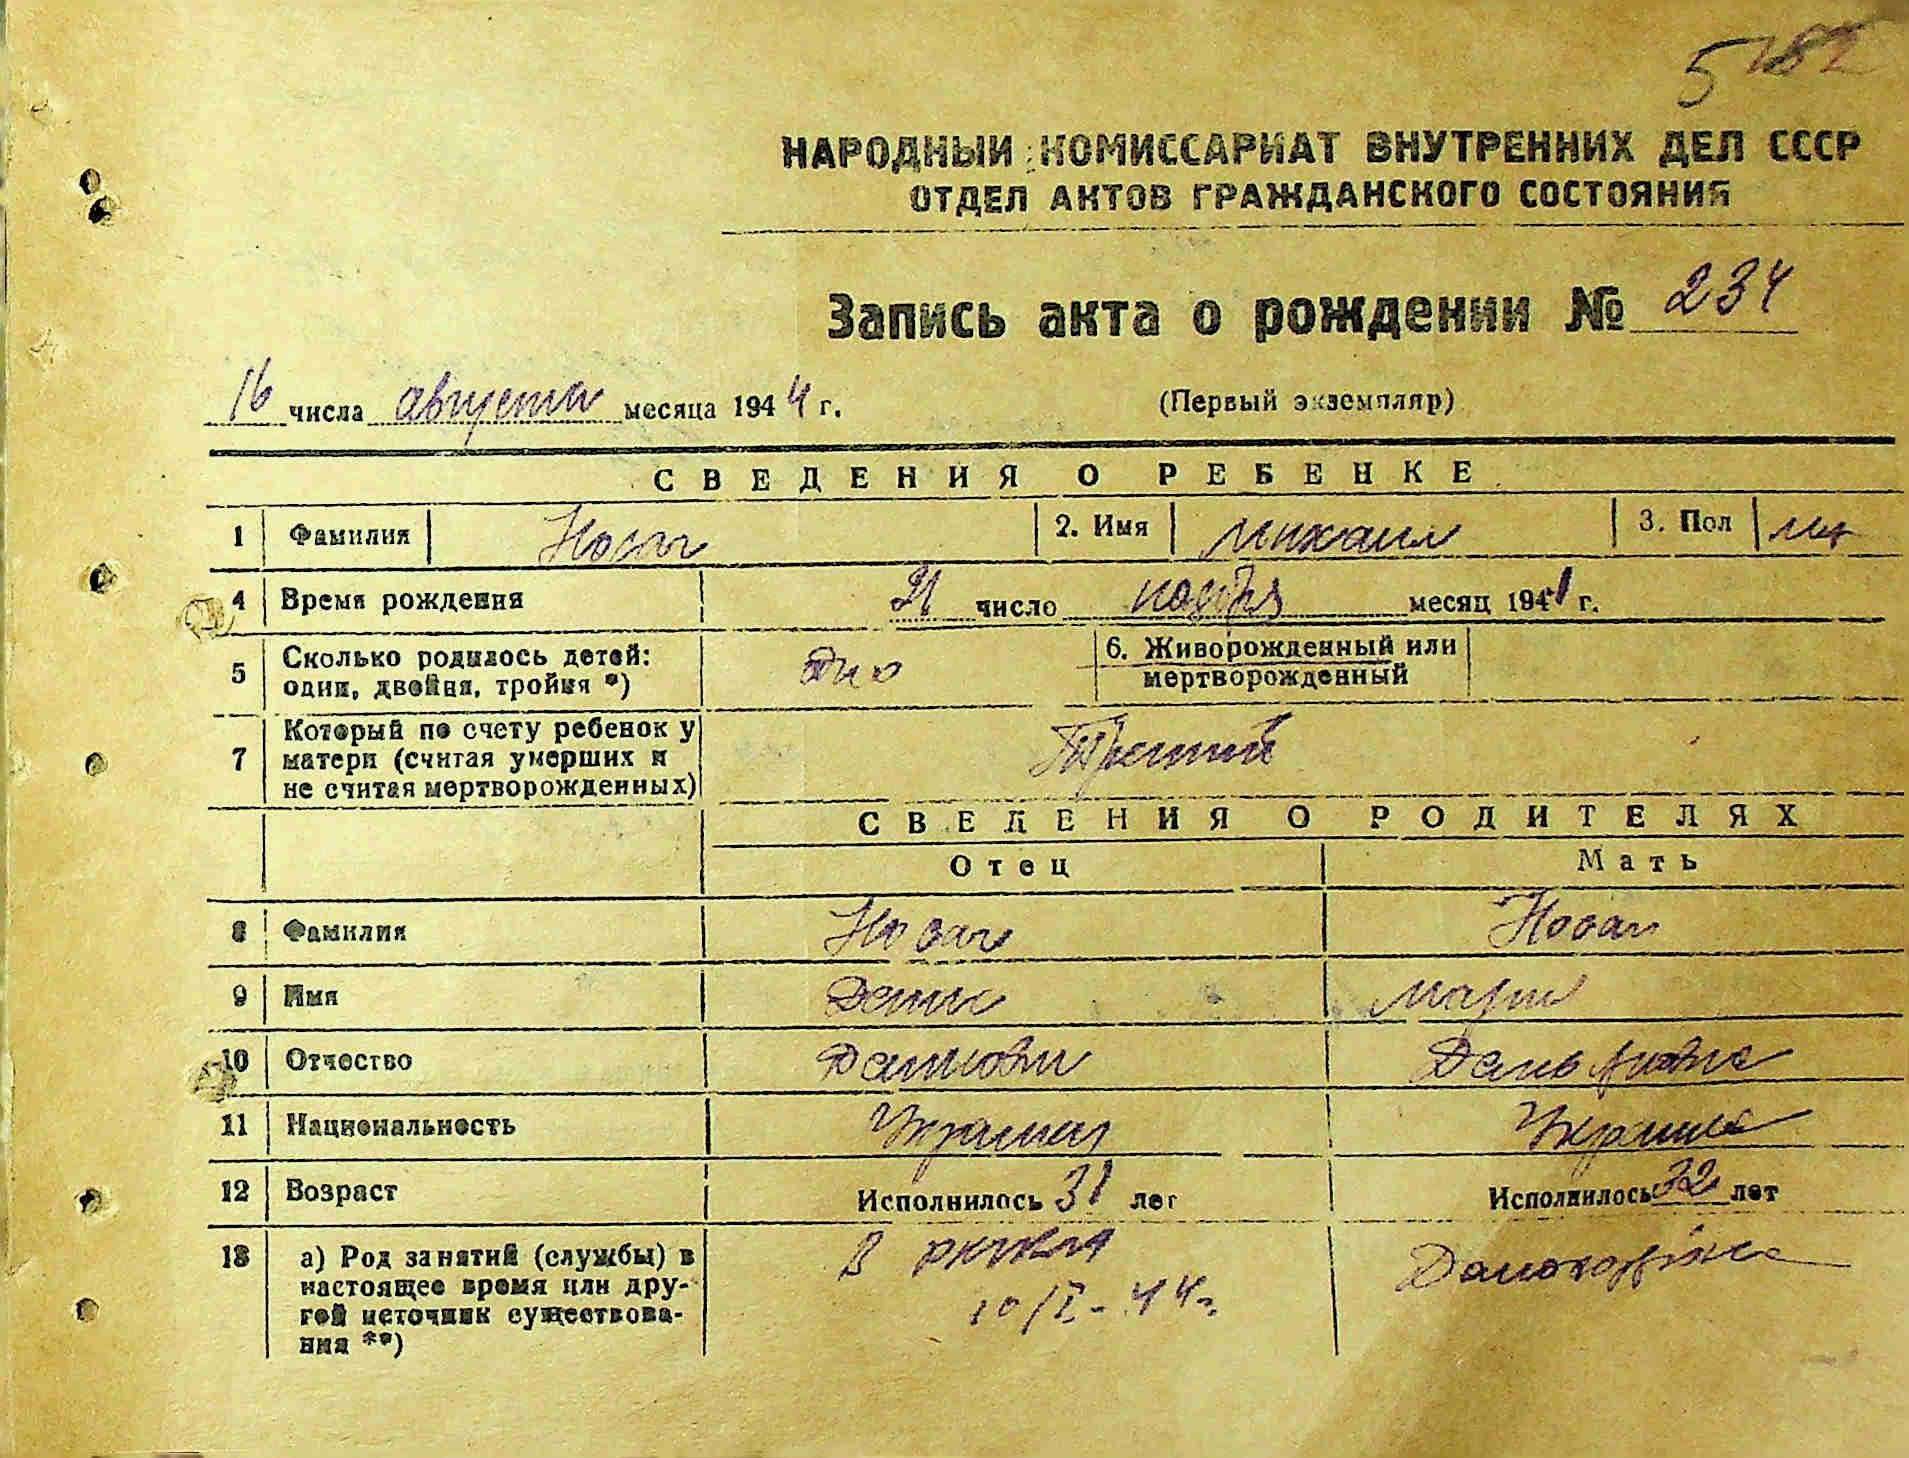 5
НАРОДНЫЙ КОМИССАРИАТ ВНУТРЕННИХ ДЕЛ СССР
ОТДЕЛ АКТОВ ГРАЖДАНСКОГО СОСТОЯНИЯ
Запись акта о рождении № 234
16 числа августа месяца 1944 г. (Первый экземпляр)
СВЕДЕНИЯ О РЕБЕНКЕ
1 Фамилия Носач 2. Имя Михаил 3. Пол муж
4 Время рождения 21 число ноября месяц 1941 г.
5 Сколько родилось детей: одни, двойня, тройня *) одно 6. Живорожденный или мертворожденный
7 Который по счету ребенок у матери (считая умерших и не считая мертворожденных) Третий
СВЕДЕНИЯ О РОДИТЕЛЯХ
Отец Мать
8 Фамилия Носач Носач
9 Имя Денис Мария
10 Отчество
11 Национальность Украинец Украинка
12 Возраст Исполнилось 31 лет Исполнилось 32 лет
13 а) Род занятий (службы) в
настоящее время или дру-
гой источник существова-
ния **)
В РККА
10/I-44 г.
Домохозяйка